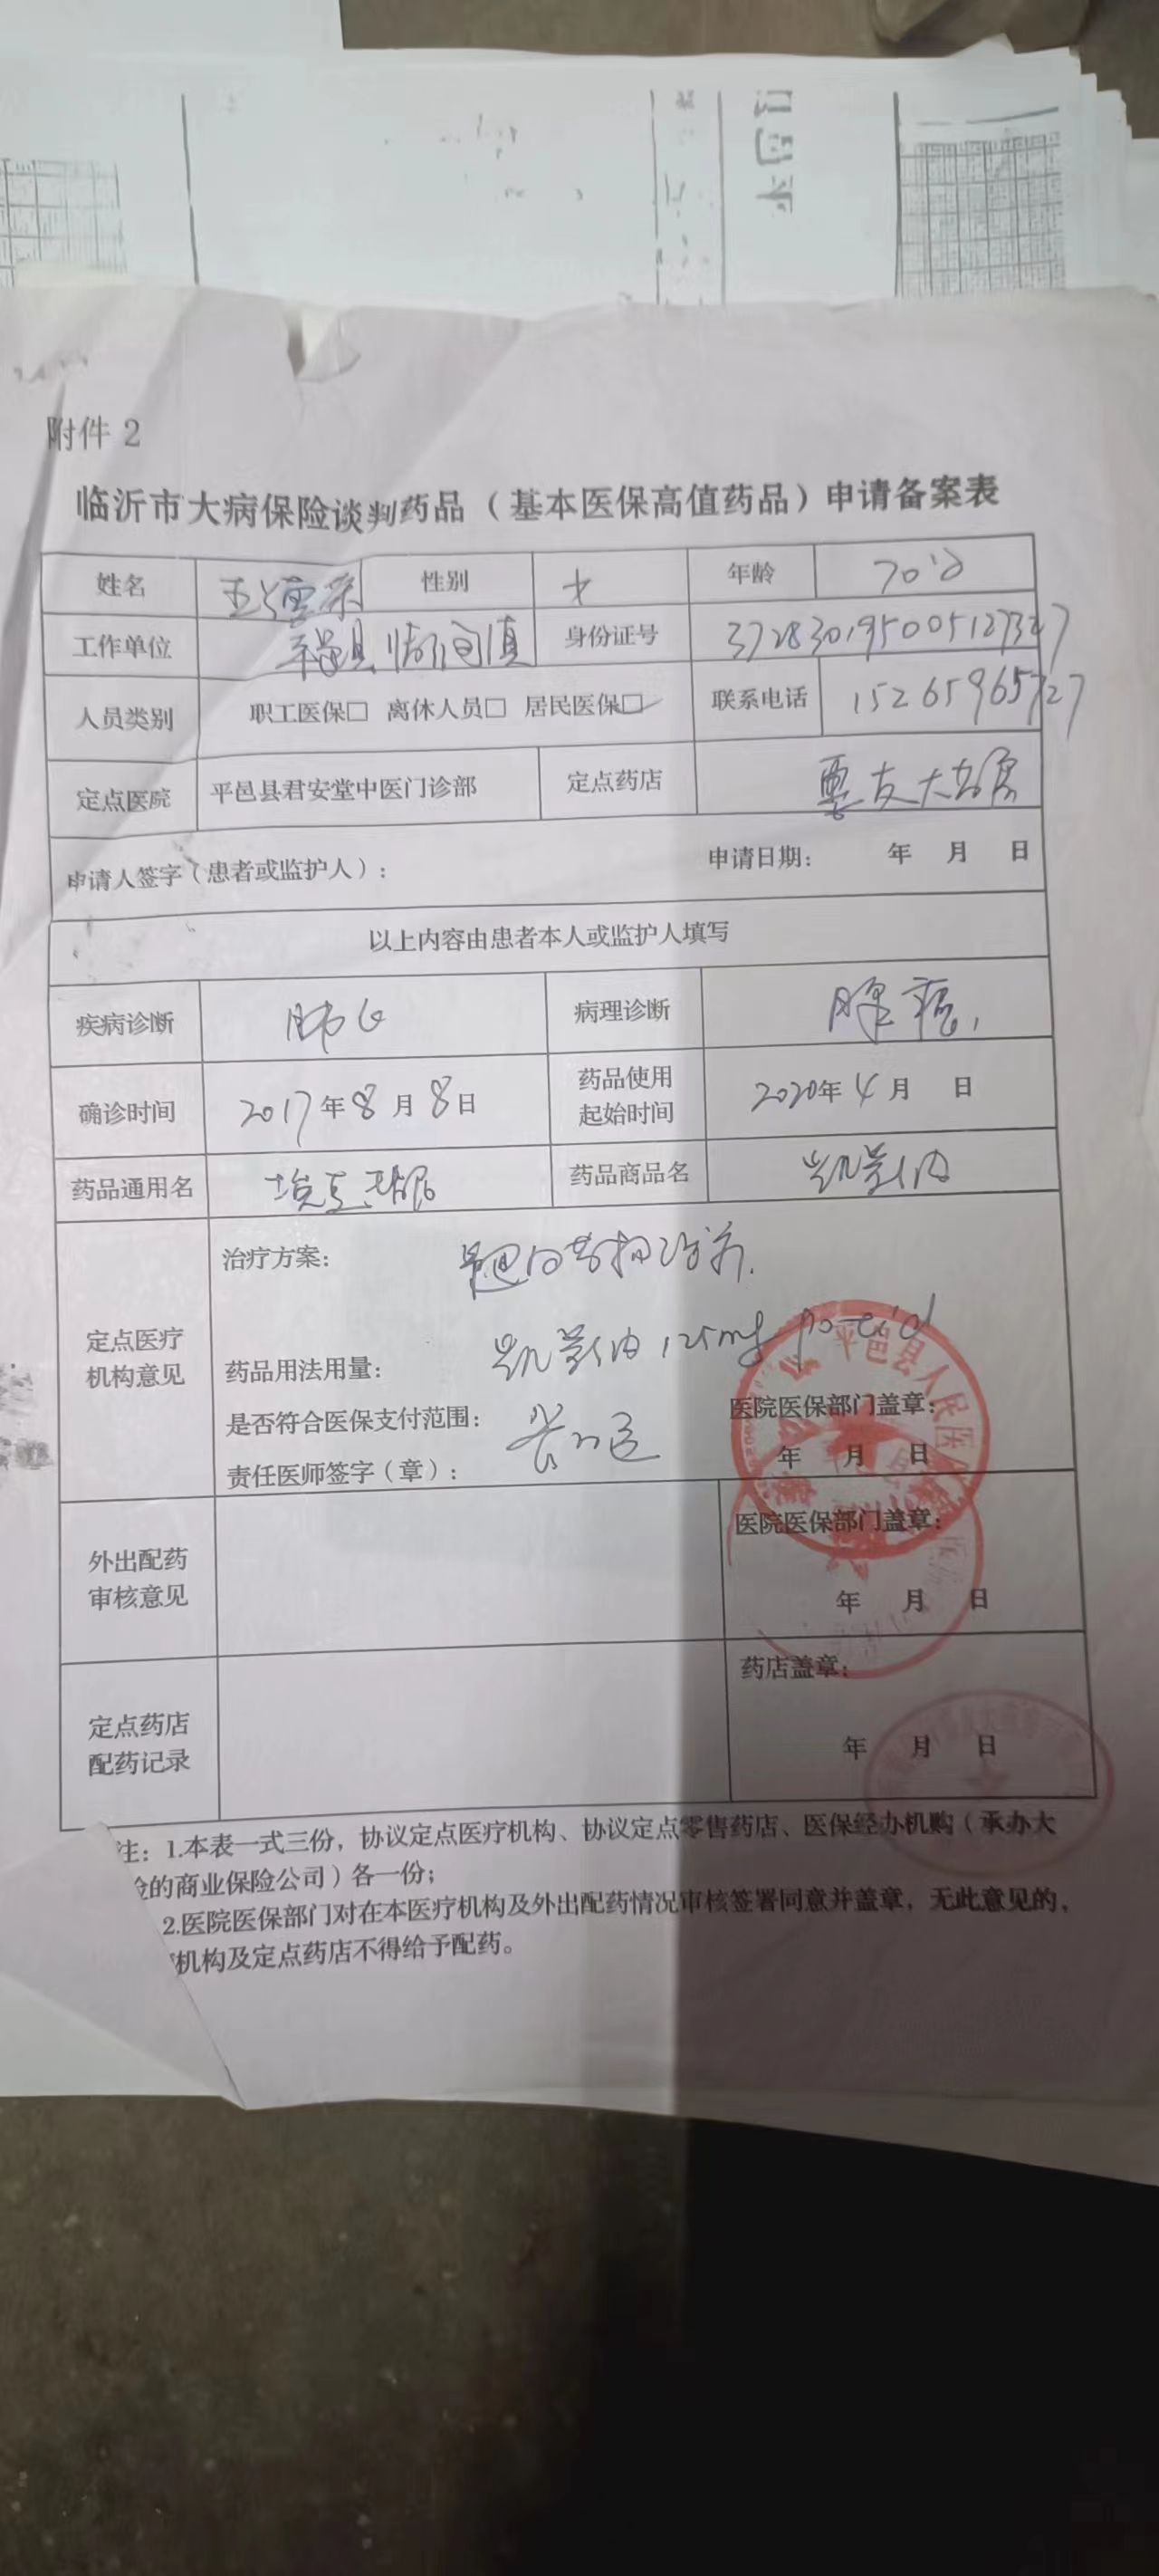 附件 2
临沂市大病保险谈判药品（基本医保高值药品）申请备案表
姓名 性别 女 年龄 70岁
工作单位 平邑县 临涧镇 身份证号
人员类别 职工医保□ 离休人员□ 居民医保□✓ 联系电话 15265965727
定点医院 平邑县君安堂中医门诊部 定点药店 大药房
申请人签字（患者或监护人）： 申请日期： 年 月 日
以上内容由患者本人或监护人填写
疾病诊断 肺Ca 病理诊断 腺癌
确诊时间 2017年8月8日 药品使用起始时间 2020年4月 日
药品通用名 埃克替尼 药品商品名 凯美纳
定点医疗机构意见
治疗方案： 靶向治疗
药品用法用量： 凯美纳 125mg po tid
是否符合医保支付范围： 医院医保部门盖章：
责任医师签字（章）： 年 月 日
外出配药审核意见 医院医保部门盖章：
年 月 日
定点药店配药记录 药店盖章：
年 月 日
平邑县人民医
注：1.本表一式三份，协议定点医疗机构、协议定点零售药店、医保经办机购（承办大
的商业保险公司）各一份；
2.医院医保部门对在本医疗机构及外出配药情况审核签署同意并盖章，无此意见的，
机构及定点药店不得给予配药。